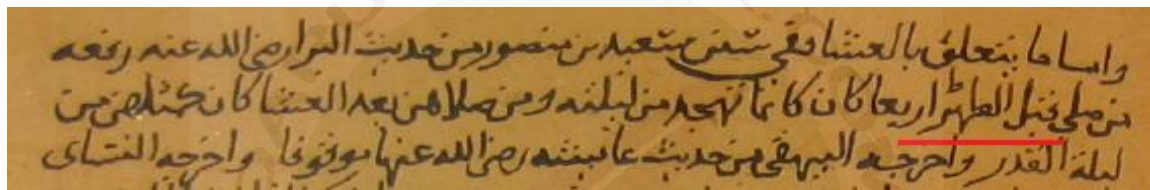 واما ما يتعلق بالعشا ففي سنن سعيد بن منصور من حديث البرا رضي الله عنه رفعه
من صلى قبل الظهر اربعا كان كانما تهجد من ليلته ومن صلاهن بعد العشا كان كمثلهن من
ليلة القدر واخرجه البيهقي من حديث عايشه رضي الله عنها موقوفا واخرجه النساى